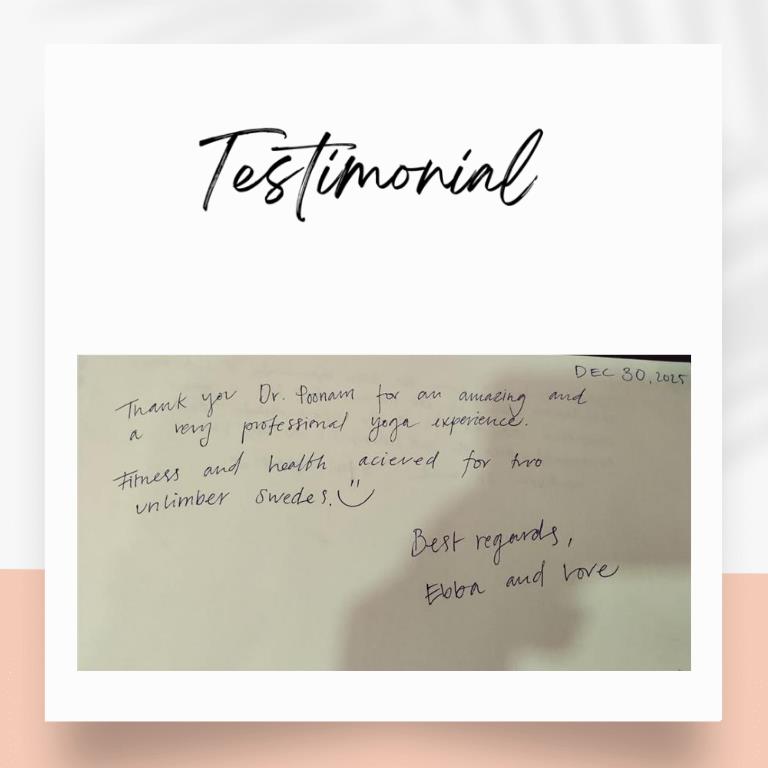 Testimonial
DEC 30, 2025
Thank you Dr. Poonam for an amazing and
a very professional yoga experience.
Fitness and health acieved for two
unlimber Swedes. :)
Best regards,
Ebba and Love